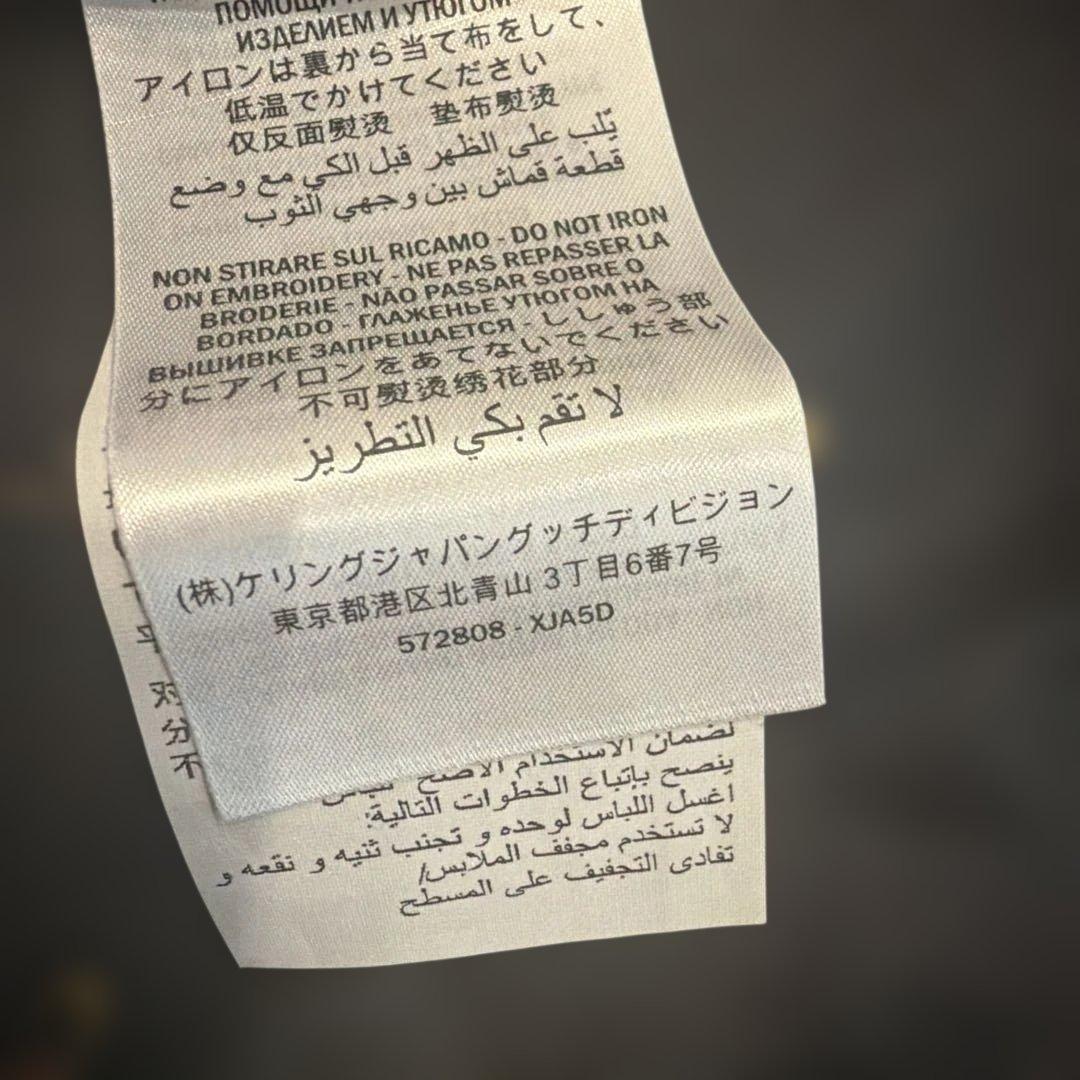 ПОМОЩИ
ИЗДЕЛИЕМ И УТЮГОМ
アイロンは裏から当て布をして、
低温でかけてください
仅反面熨烫 垫布熨烫
يُلب على الظهر قبل الكي مع وضع
قطعة قماش بين وجهي الثوب
NON STIRARE SUL RICAMO - DO NOT IRON
ON EMBROIDERY - NE PAS REPASSER LA
BRODERIE - NÃO PASSAR SOBRE O
BORDADO - ГЛАЖЕНЬЕ УТЮГОМ НА
ВЫШИВКЕ ЗАПРЕЩАЕТСЯ - ししゅう部
分にアイロンをあてないでください
不可熨烫绣花部分
لا تقم بكي التطريز
(株)ケリングジャパングッチディビジョン
東京都港区北青山 3丁目6番7号
572808 - XJA5D
对
分
不
لضمان الاستخدام الاصح
ينصح بإتباع الخطوات التالية:
اغسل اللباس لوحده و تجنب ثنيه و نقعه و
لا تستخدم مجفف الملابس/
تفادى التجفيف على المسطح